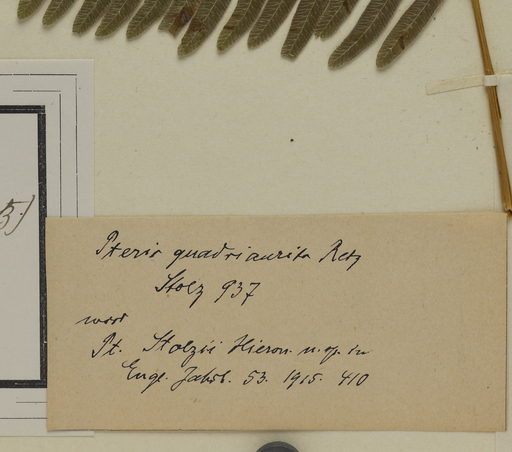 5.)
Pteris quadriaurita Retz
Stolz 937
Pt. Stolzii Hieron. n. sp. in
Engl. Jahrb. 53. 1915. 410